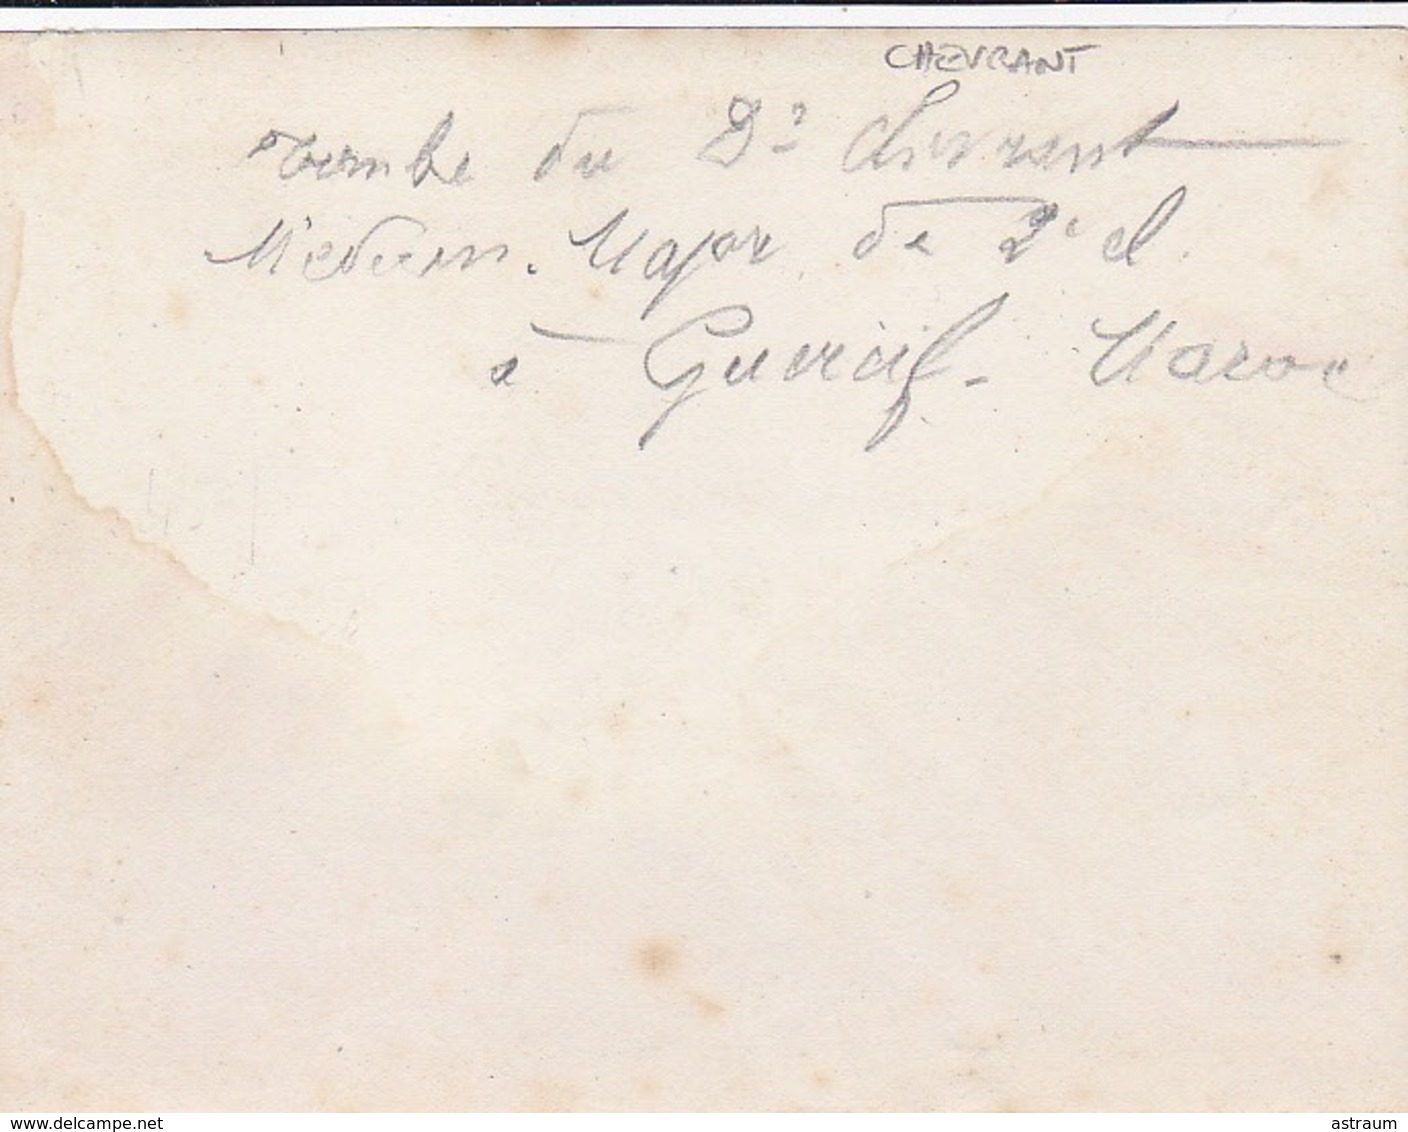 CHEVRANT
Tombe du Dr Chevrant
Médecin-Major de 2e cl.
à Guercif - Maroc
www.delcampe.net
astraum